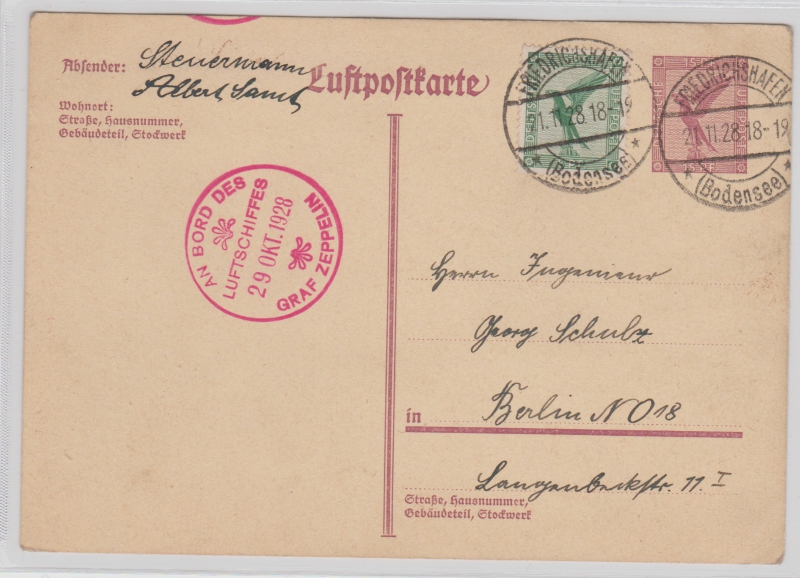 Absender: Steuermann
Albert Samt
Luftpostkarte
Wohnort:
Straße, Hausnummer,
Gebäudeteil, Stockwerk
FRIEDRICHSHAFEN
21.11.28.18-19
* (Bodensee) *
FRIEDRICHSHAFEN
21.11.28.18-19
* (Bodensee) *
AN BORD DES
LUFTSCHIFFES
29 OKT. 1928
GRAF ZEPPELIN
Herrn Ingenieur
Georg Schulz
in Berlin NO 18
Langenbeckstr. 11 I
Straße, Hausnummer,
Gebäudeteil, Stockwerk